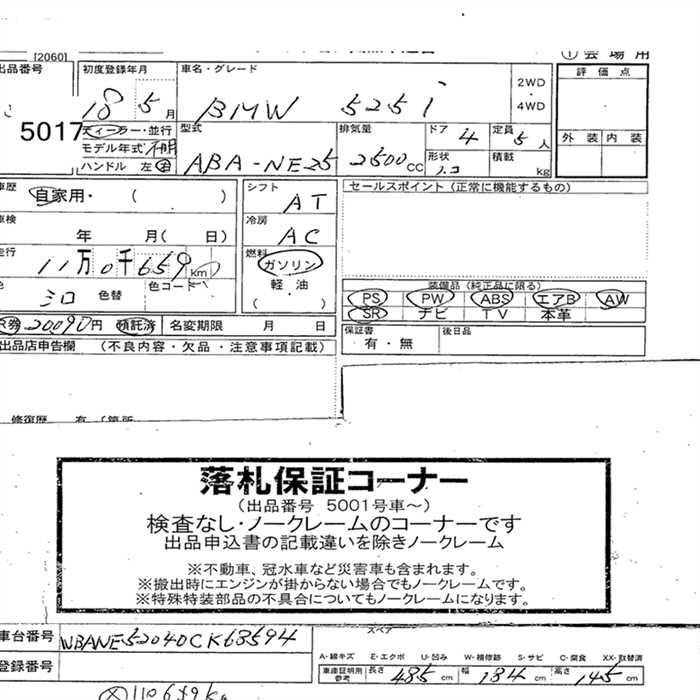 [2060]
① 会場用
出品番号 初度登録年月 車名・グレード 2WD ・ 4WD 評価点
5017 18 5月 BMW 525i
ディーラー・並行 型式 排気量 ドア 4 定員 5人 外装 内装
モデル年式
ハンドル 左・右 ABA-NE25 2500cc 形状 積載 kg
車歴 自家用・( ) シフト AT セールスポイント(正常に機能するもの)
車検 年 月( 日) 冷房 AC
走行 11万0千659km 燃料 ガソリン
色 シロ 色替 色コード 軽油 ( )
装備品(純正品に限る)
PS PW ABS エアB AW
SR ナビ TV 本革
R券 20,090円 預託済 名変期限 月 日 保証書 有・無 後日品
出品店申告欄 (不良内容・欠品・注意事項記載)
修復歴 有(箇所
落札保証コーナー
(出品番号 5001号車〜)
検査なし・ノークレームのコーナーです
出品申込書の記載違いを除きノークレーム
※不動車、冠水車など災害車も含まれます。
※搬出時にエンジンが掛からない場合でもノークレームです。
※特殊特装部品の不具合についてもノークレームになります。
車台番号 WBANE52040CK68594 スペア
A-線キズ E-エクボ U-凹み W-補修跡 S-サビ C-腐食 XX-取替済
登録番号 車庫証明用参考 長さ 485cm 幅 184cm 高さ 145cm
110659km